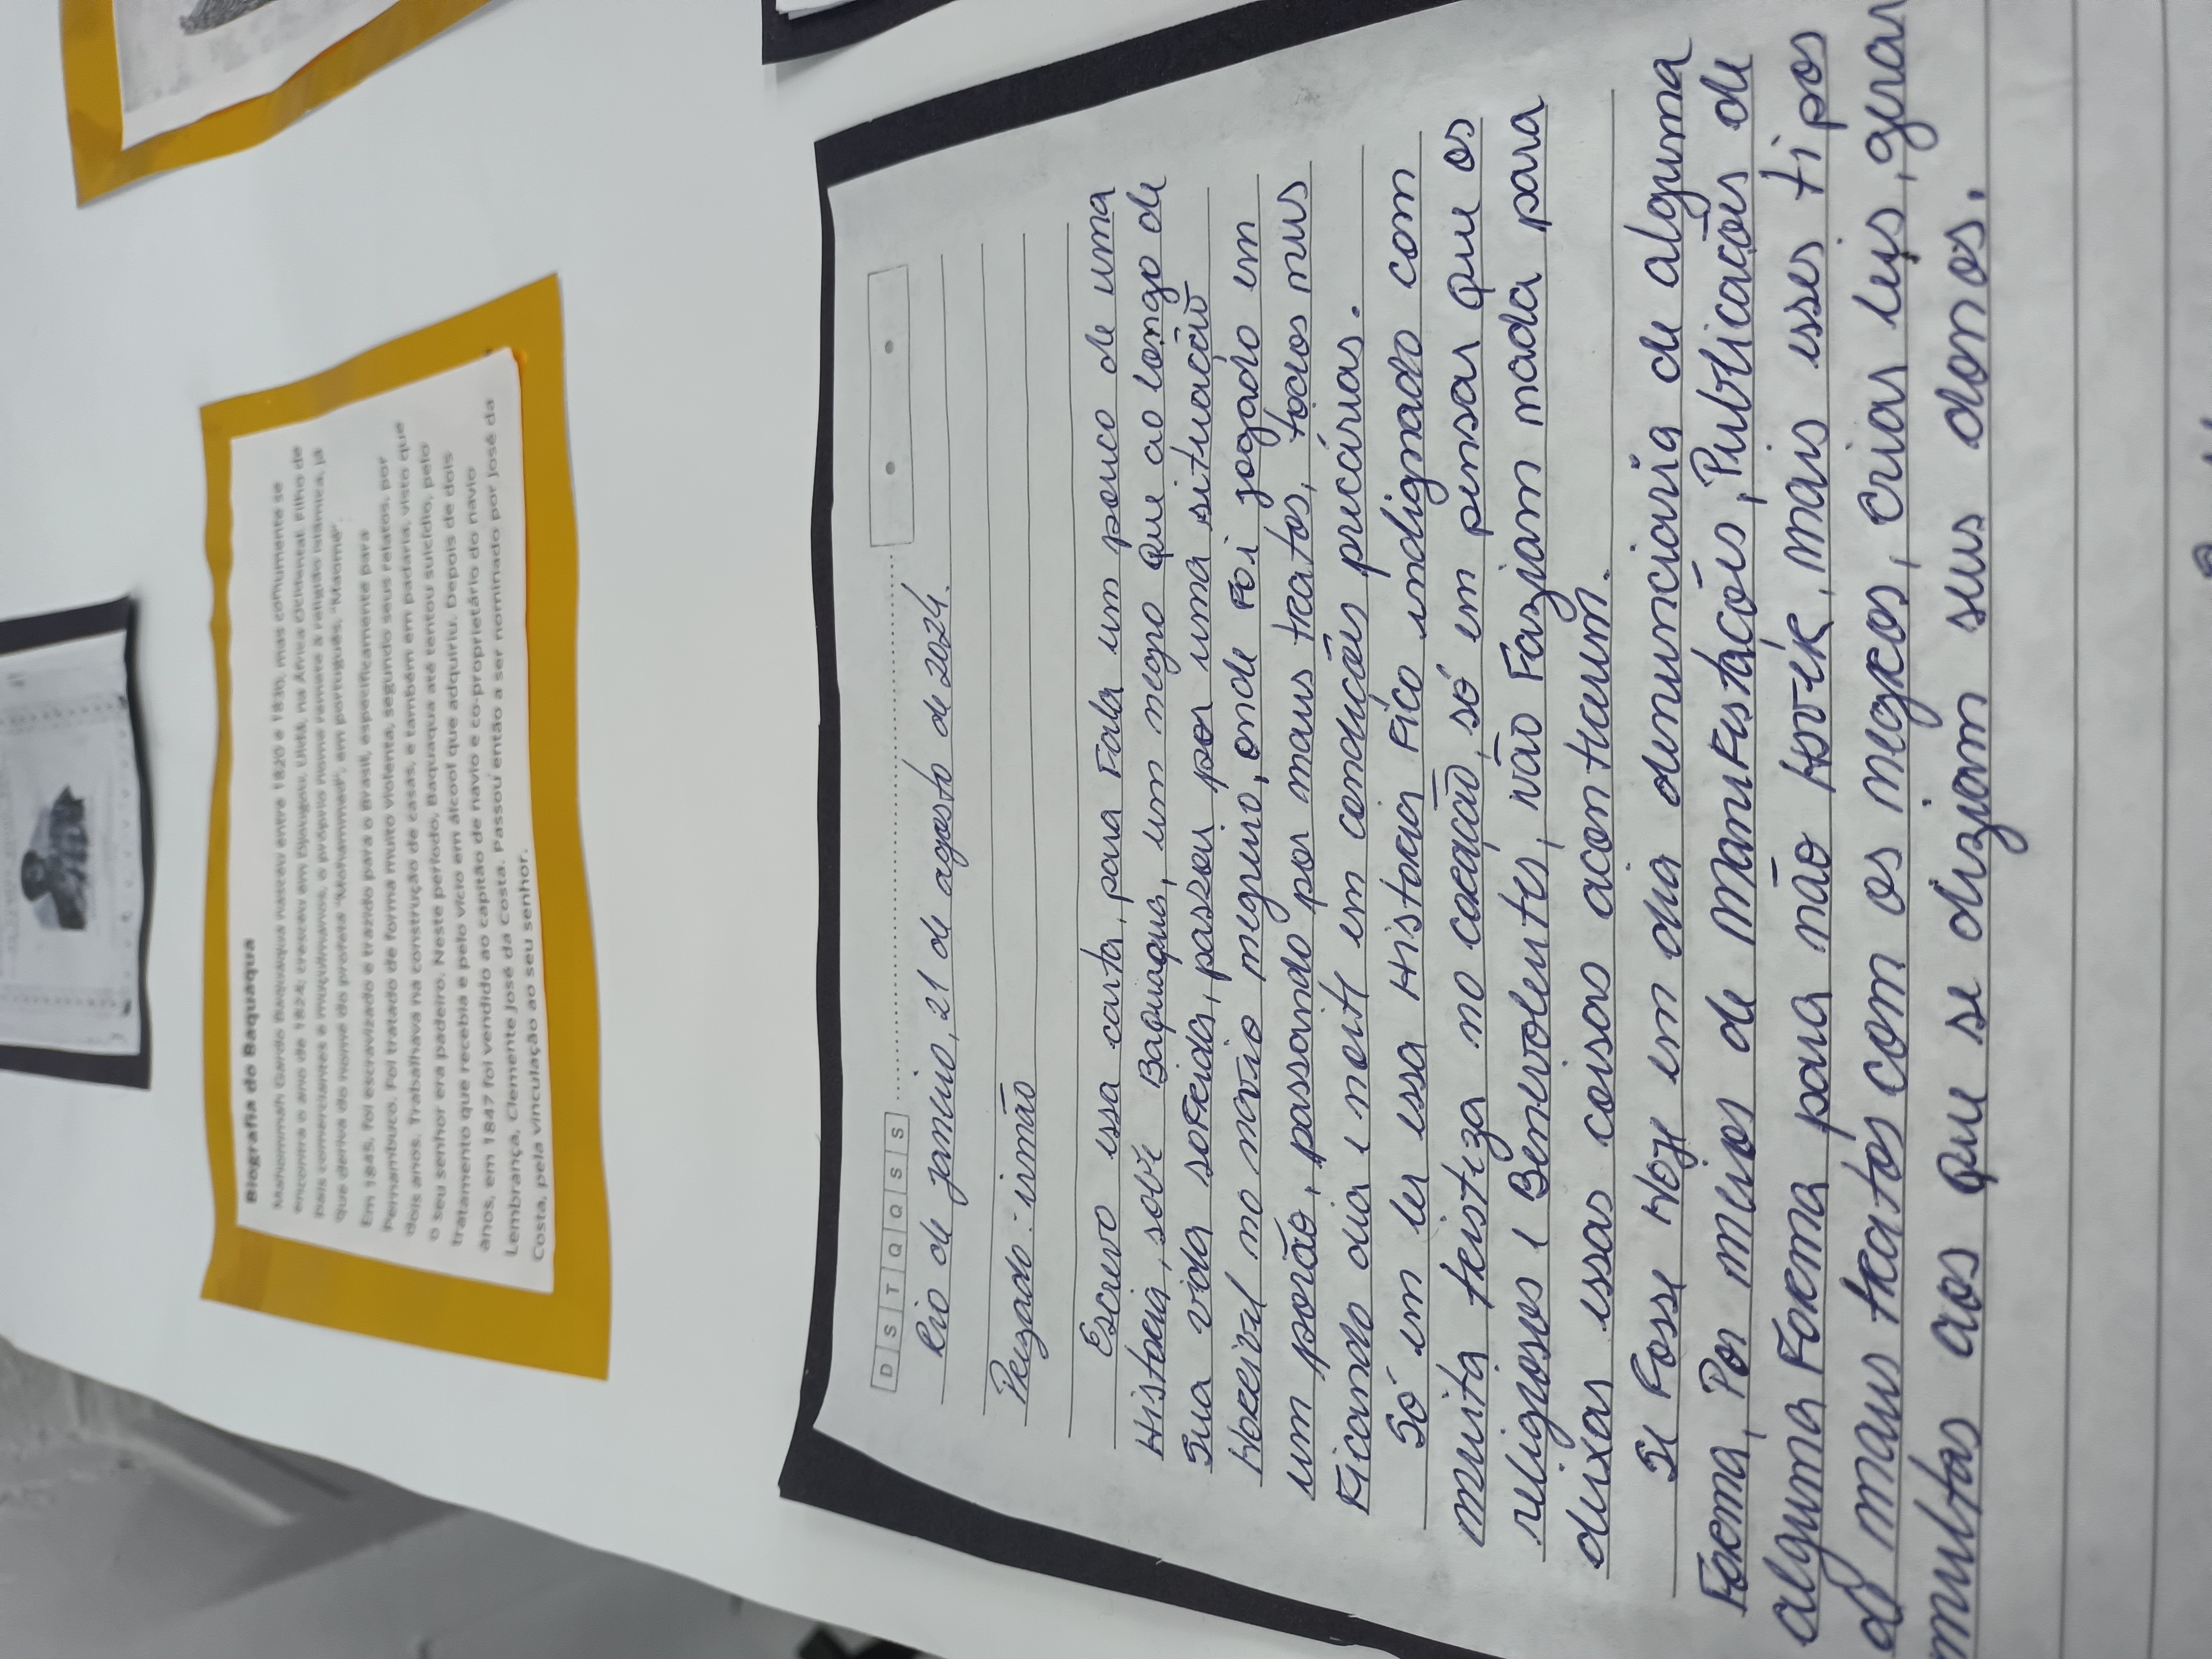 Biografia de Baquaqua
Mahommah Gardo Baquaqua nasceu entre 1820 e 1830, mas comumente se
encontra o ano de 1824; cresceu em Djougou, Uidá, na África Ocidental. Filho de
pais comerciantes e muçulmanos, o próprio nome remete à religião islâmica, já
que deriva do nome do profeta "Mohammed", em português, "Maomé".
Em 1845, foi escravizado e trazido para o Brasil, especificamente para
Pernambuco. Foi tratado de forma muito violenta, segundo seus relatos, por
dois anos. Trabalhava na construção de casas, e também em padaria, visto que
o seu senhor era padeiro. Neste período, Baquaqua até tentou suicídio, pelo
tratamento que recebia e pelo vício em álcool que adquiriu. Depois de dois
anos, em 1847 foi vendido ao capitão de navio e co-proprietário do navio
Lembrança, Clemente José da Costa. Passou então a ser nominado por José da
Costa, pela vinculação ao seu senhor.
D S T Q Q S S
Rio de janeiro, 21 de agosto de 2024.
Prezado: irmão
Escrevo essa carta, para Fala um pouco de uma
História, sobre Baquaqua, um negro que ao longo de
Sua vida sofrida, passou por uma situação
Horrivel no navio negreiro, onde Foi jogado em
um porão, passando por maus tratos, todos nus
Ficando dia e noite em condições precárias.
Só em ler essa História Fico indignado com
muita tristiza no coração, só em pensar que os
religiosos e Benevolentes, não Faziam nada para
deixar essas coisas acontecerem.
Se Fosse Hoje em dia denunciaria de alguma
Forma, Por meios de Manifestações, Publicações de
alguma Forma para não Hover, mais esses tipos
d maus tratos com os negros, criar leis, gerar
multas aos que se diziam seus donos.